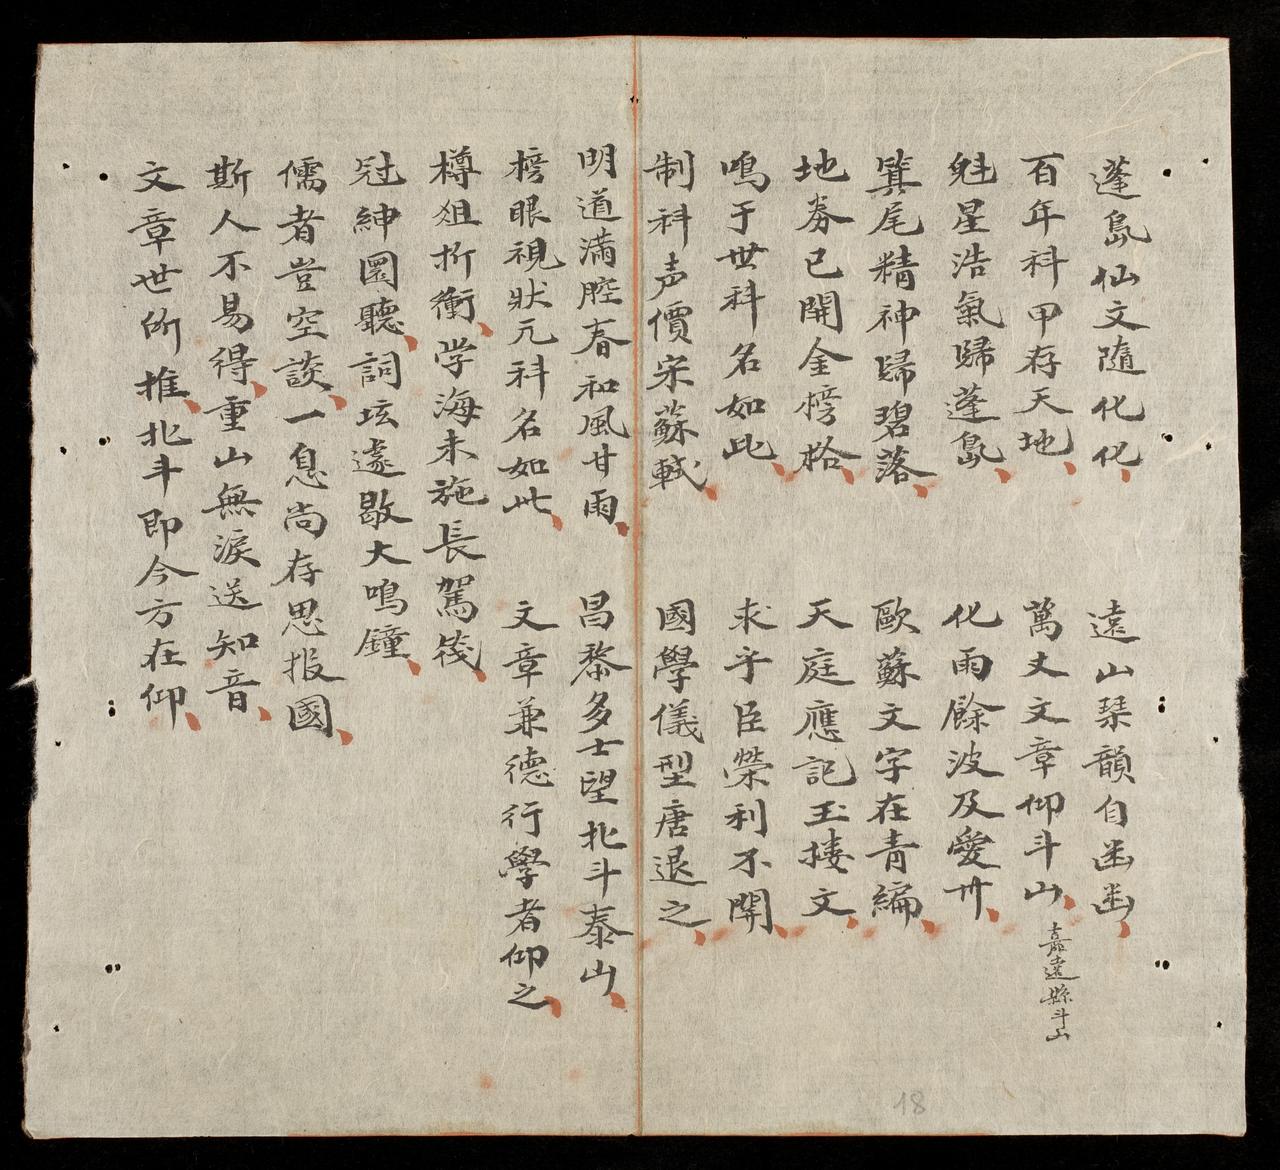 蓬島仙文隨化化 遠山琴韻自幽幽
百年科甲存天地 萬丈文章仰斗山 嘉遠縣斗山
魁星浩氣歸蓬島 化雨餘波及愛卅
箕尾精神歸碧落 歐蘇文字在青編
地券已開金榜格 天庭應記玉楼文
鳴于世科名如此 求乎臣榮利不関
制科声價宋蘇軾 國學儀型唐退之
明道滿腔春和風甘雨 昌黎多士望北斗泰山
榜眼視狀元科名如此 文章兼德行學者仰之
樽俎折衝学海未施長駕筏
冠紳圜聽詞坛遽歇大鳴鐘
儒者豈空談一息尚存思报國
斯人不易得重山無淚送知音
文章世所推北斗即今方在仰
18